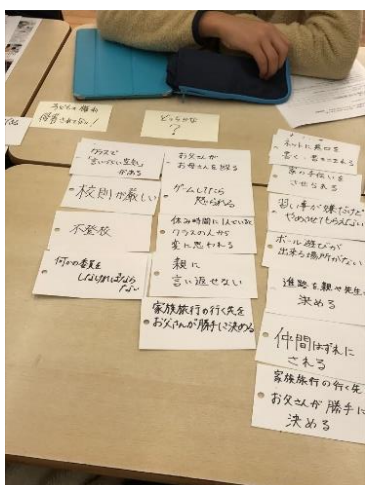 子どもの権利
侵害されてない!
どっちかな
?
クラスで
言いづらい空気
がある
校則が厳しい
不登校
何かの委員を
しなければなら
ない
お父さんが
お母さんを殴る
ゲームしてたら
怒られる
休み時間に1人でいると
クラスの人から
変に思われる
親に
言い返せない
家族旅行の行く先を
お父さんが勝手に決める
ネットに悪口を
書く・書きこまれる
家の手伝いを
させられる
習い事が嫌だけど
やめさせてもらえない
ボール遊びが
出来る場所がない
進路を親や先生が
決める
仲間はずれに
される
家族旅行の行く先
お父さんが勝手に
決める